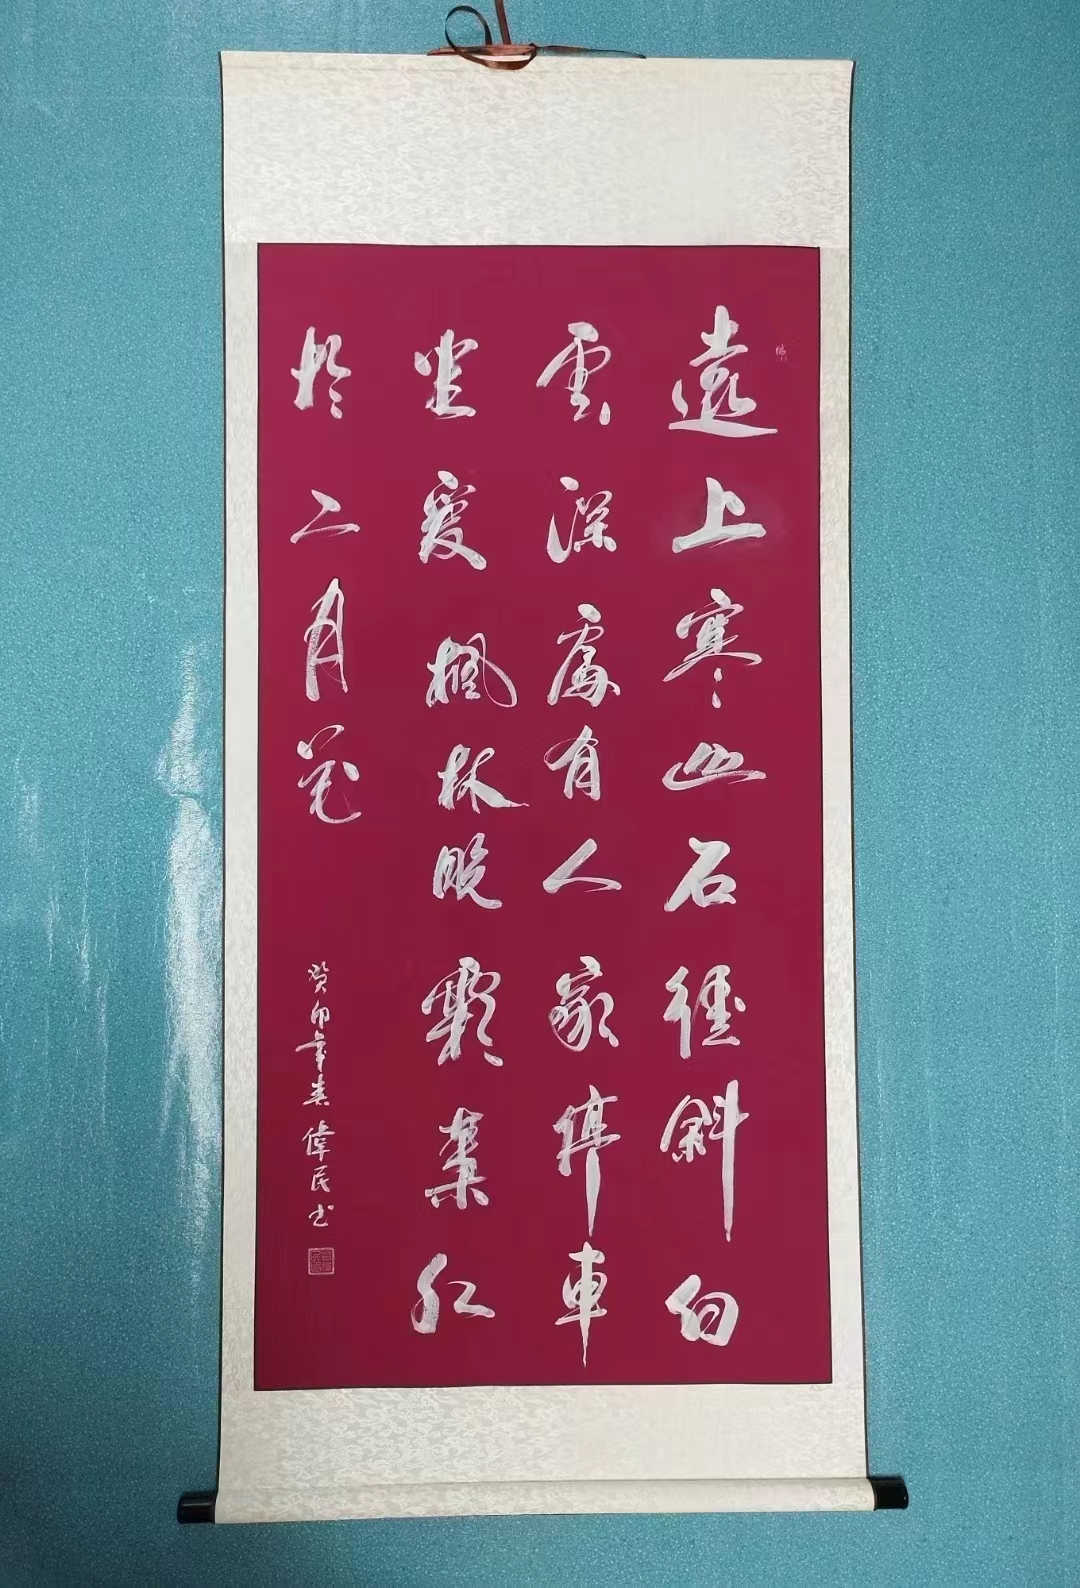 遠上寒山石徑斜白
雲深處有人家停車
坐愛楓林晚霜葉紅
於二月花
癸卯年春偉民书